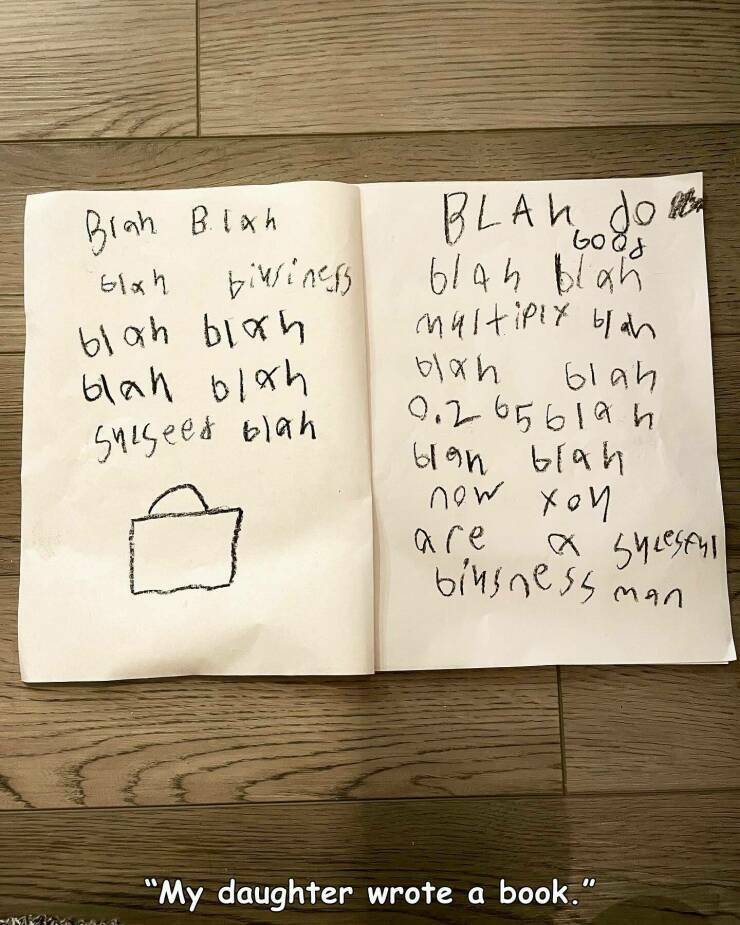 Blah Blah
blah biusiness
blah blah
blah blah
sucseed blah
BLAh do
good
blah blah
multiply blah
blah blah
0.265 blah
blah blah
now you
are a sucesful
biusness man
"My daughter wrote a book."